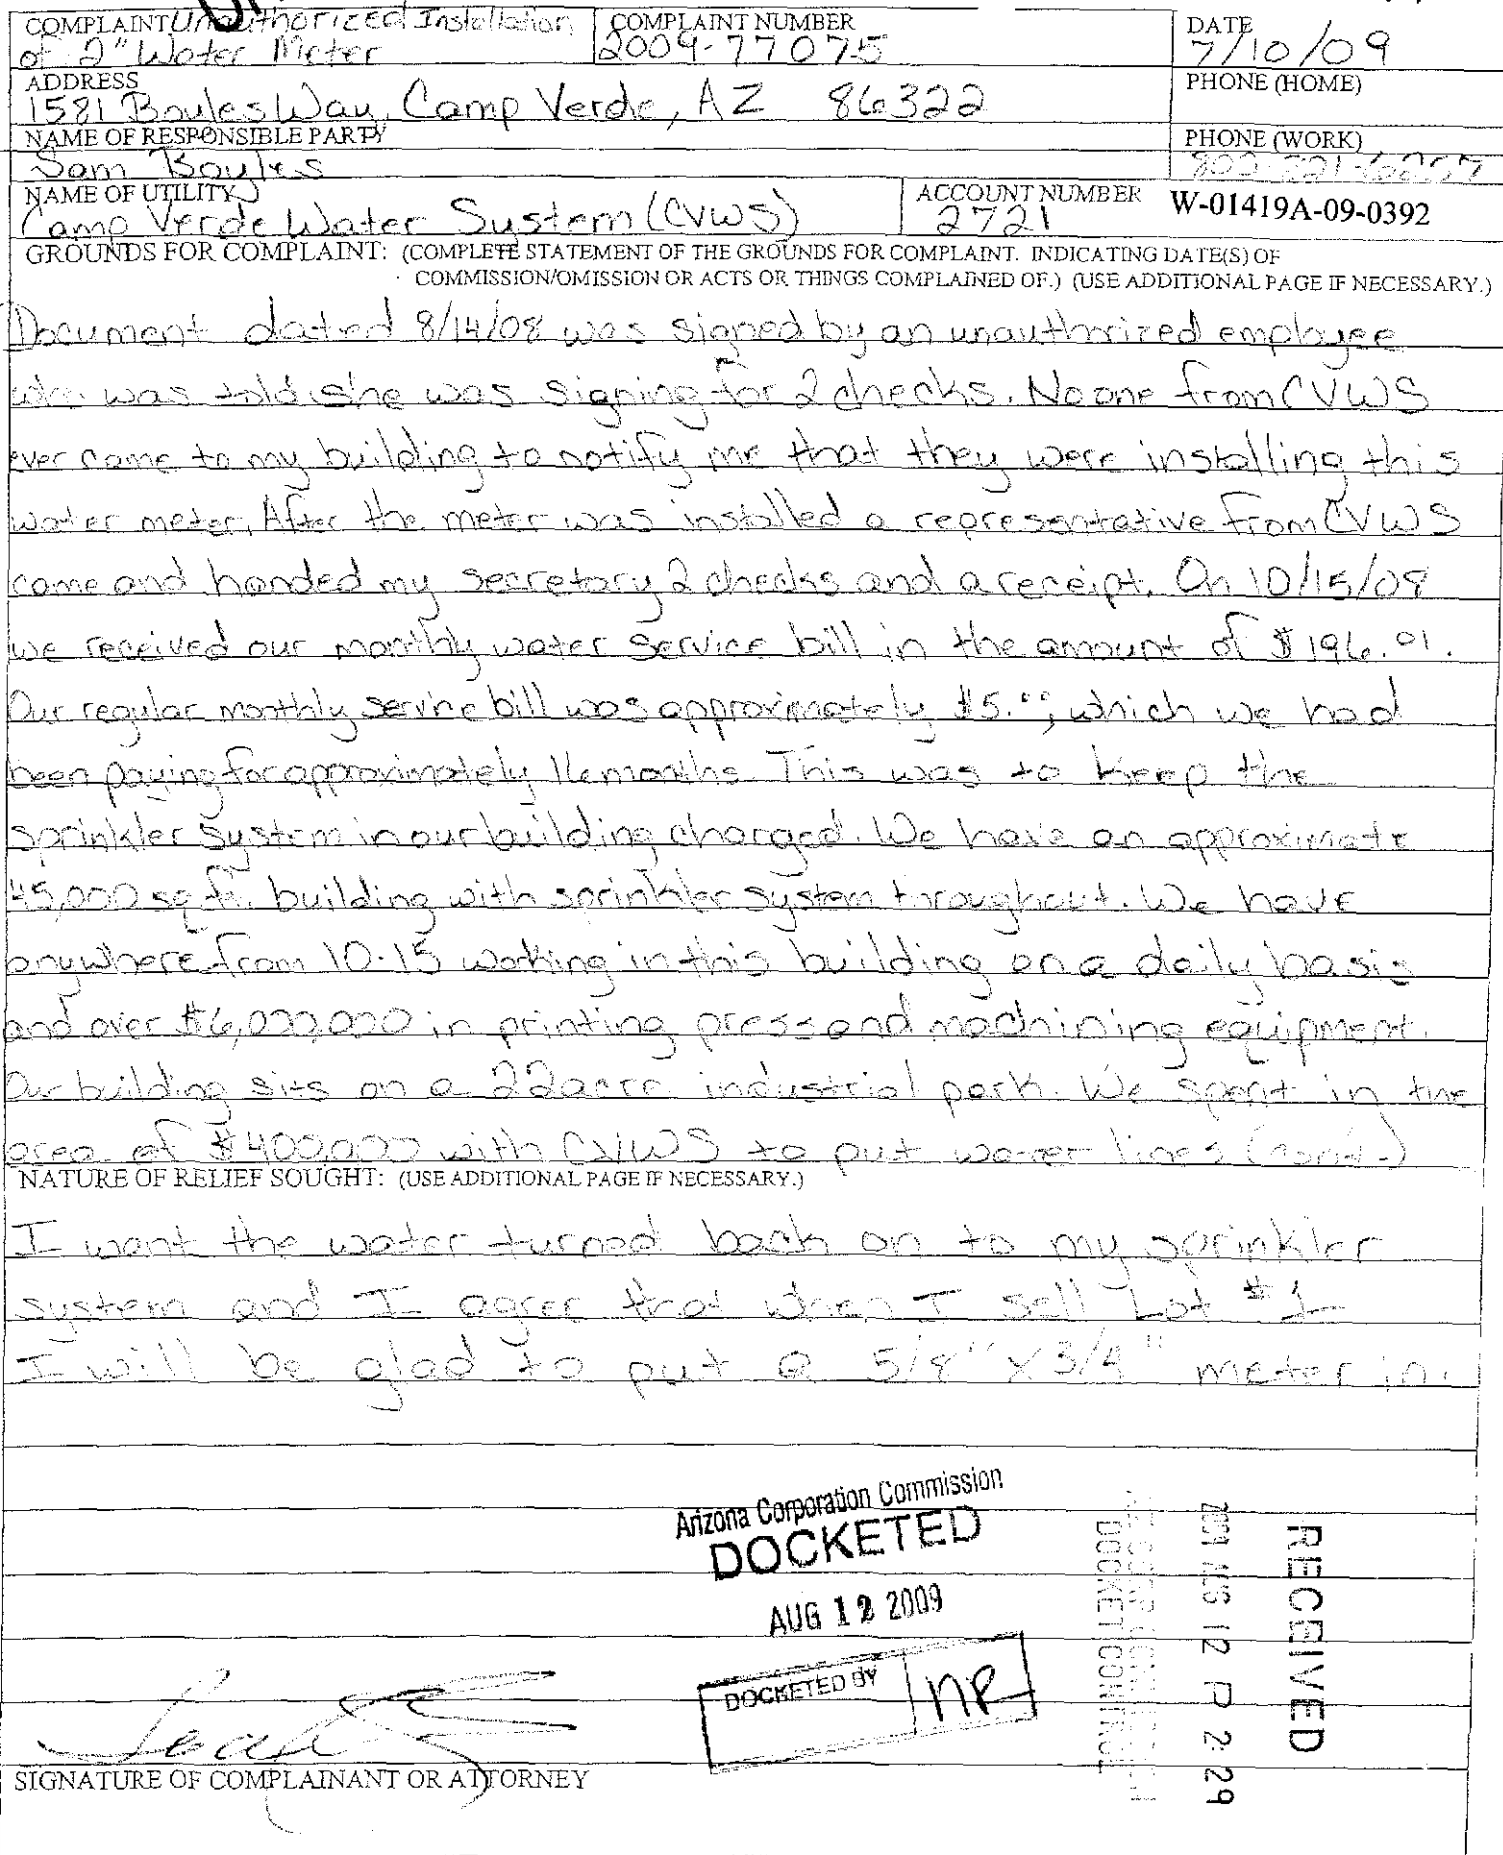 COMPLAINT Unauthorized Installation
of 2" Water Meter
COMPLAINT NUMBER
2009-77075
DATE
7/10/09
ADDRESS
1581 Boyles Way, Camp Verde, AZ 86322
PHONE (HOME)
NAME OF RESPONSIBLE PARTY
Sam Boyles
PHONE (WORK)
NAME OF UTILITY
Camp Verde Water System (CVWS)
ACCOUNT NUMBER
2721
W-01419A-09-0392
GROUNDS FOR COMPLAINT: (COMPLETE STATEMENT OF THE GROUNDS FOR COMPLAINT. INDICATING DATE(S) OF
COMMISSION/OMISSION OR ACTS OR THINGS COMPLAINED OF.) (USE ADDITIONAL PAGE IF NECESSARY.)
Document dated 8/14/08 was signed by an unauthorized employee
who was told she was signing for 2 checks. No one from CVWS
ever came to my building to notify me that they were installing this
water meter. After the meter was installed a representative from CVWS
came and handed my secretary 2 checks and a receipt. On 10/15/08
we received our monthly water service bill in the amount of $196.01.
Our regular monthly service bill was approximately $5.00; which we had
been paying for approximately 16 months. This was to keep the
sprinkler system in our building charged. We have an approximate
45,000 sq ft. building with sprinkler system throughout. We have
anywhere from 10-15 working in this building on a daily basis
and over $6,000,000 in printing press and machining equipment.
Our building sits on a 22 acre industrial park. We spent in the
area of $400,000 with CVWS to put water lines (cont.)
NATURE OF RELIEF SOUGHT: (USE ADDITIONAL PAGE IF NECESSARY.)
I want the water turned back on to my sprinkler
system and I agree that when I sell Lot #1
I will be glad to put a 5/8" x 3/4" meter in.
Arizona Corporation Commission
DOCKETED
AUG 12 2009
DOCKETED BY
nr
RECEIVED
2009 AUG 12 P 2:29
DOCKET CONTROL
SIGNATURE OF COMPLAINANT OR ATTORNEY